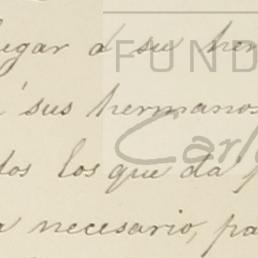 legar á su her
á sus hermanos
dos los que da p
a necesario, pa
FUND
Carlo